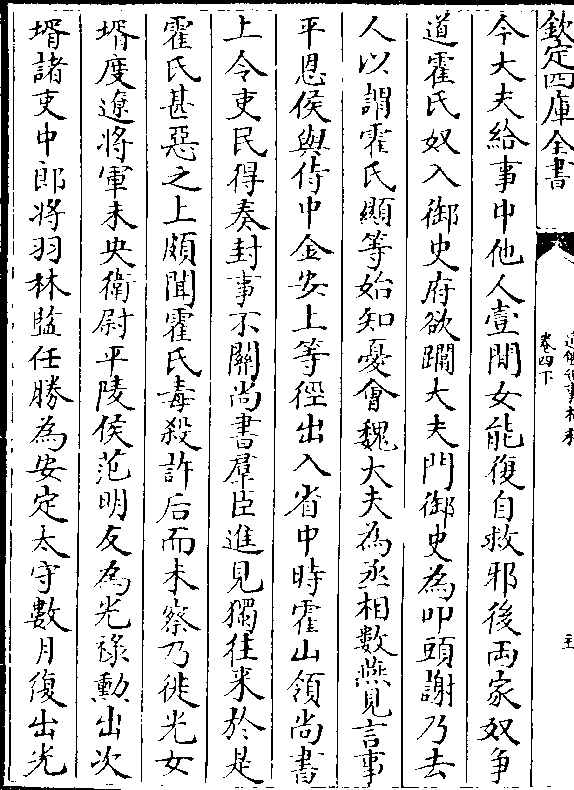 欽定四庫全書
卷四下
今大夫給事中他人壹間女能復自救邪後両家奴争
道霍氏奴入御史府欲躢大夫門御史為叩頭謝乃去
人以謂霍氏顯等始知憂會魏大夫為丞相數燕見言事
平恩侯與侍中金安上等徑出入省中時霍山領尚書
上令吏民得奏封事不關尚書羣臣進見獨往来於是
霍氏甚惡之上頗聞霍氏毒殺許后而未察乃徙光女
壻度遼將軍未央衛尉平陵侯范明友為光祿勲出次
壻諸吏中郎將羽林監任勝為安定太守數月復出光